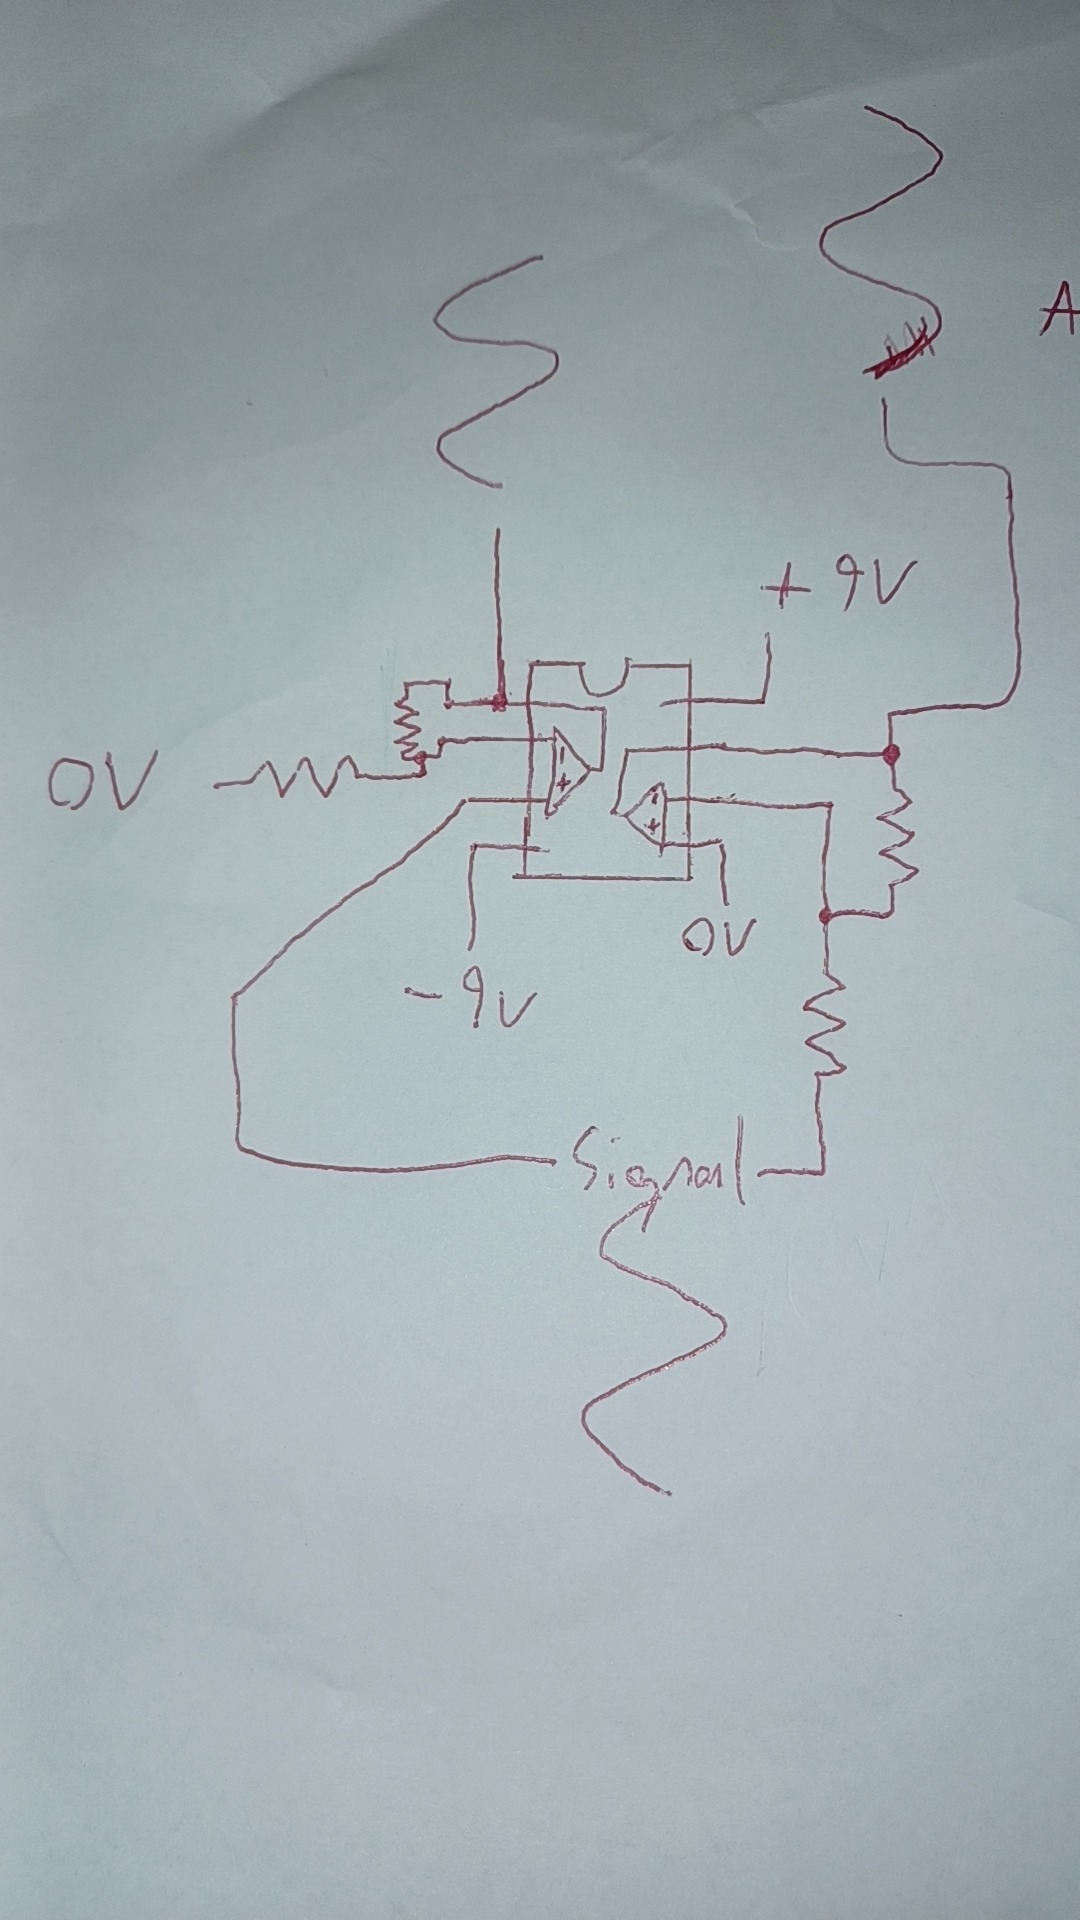 A
+ 9V
0V
0V
- 9V
Signal